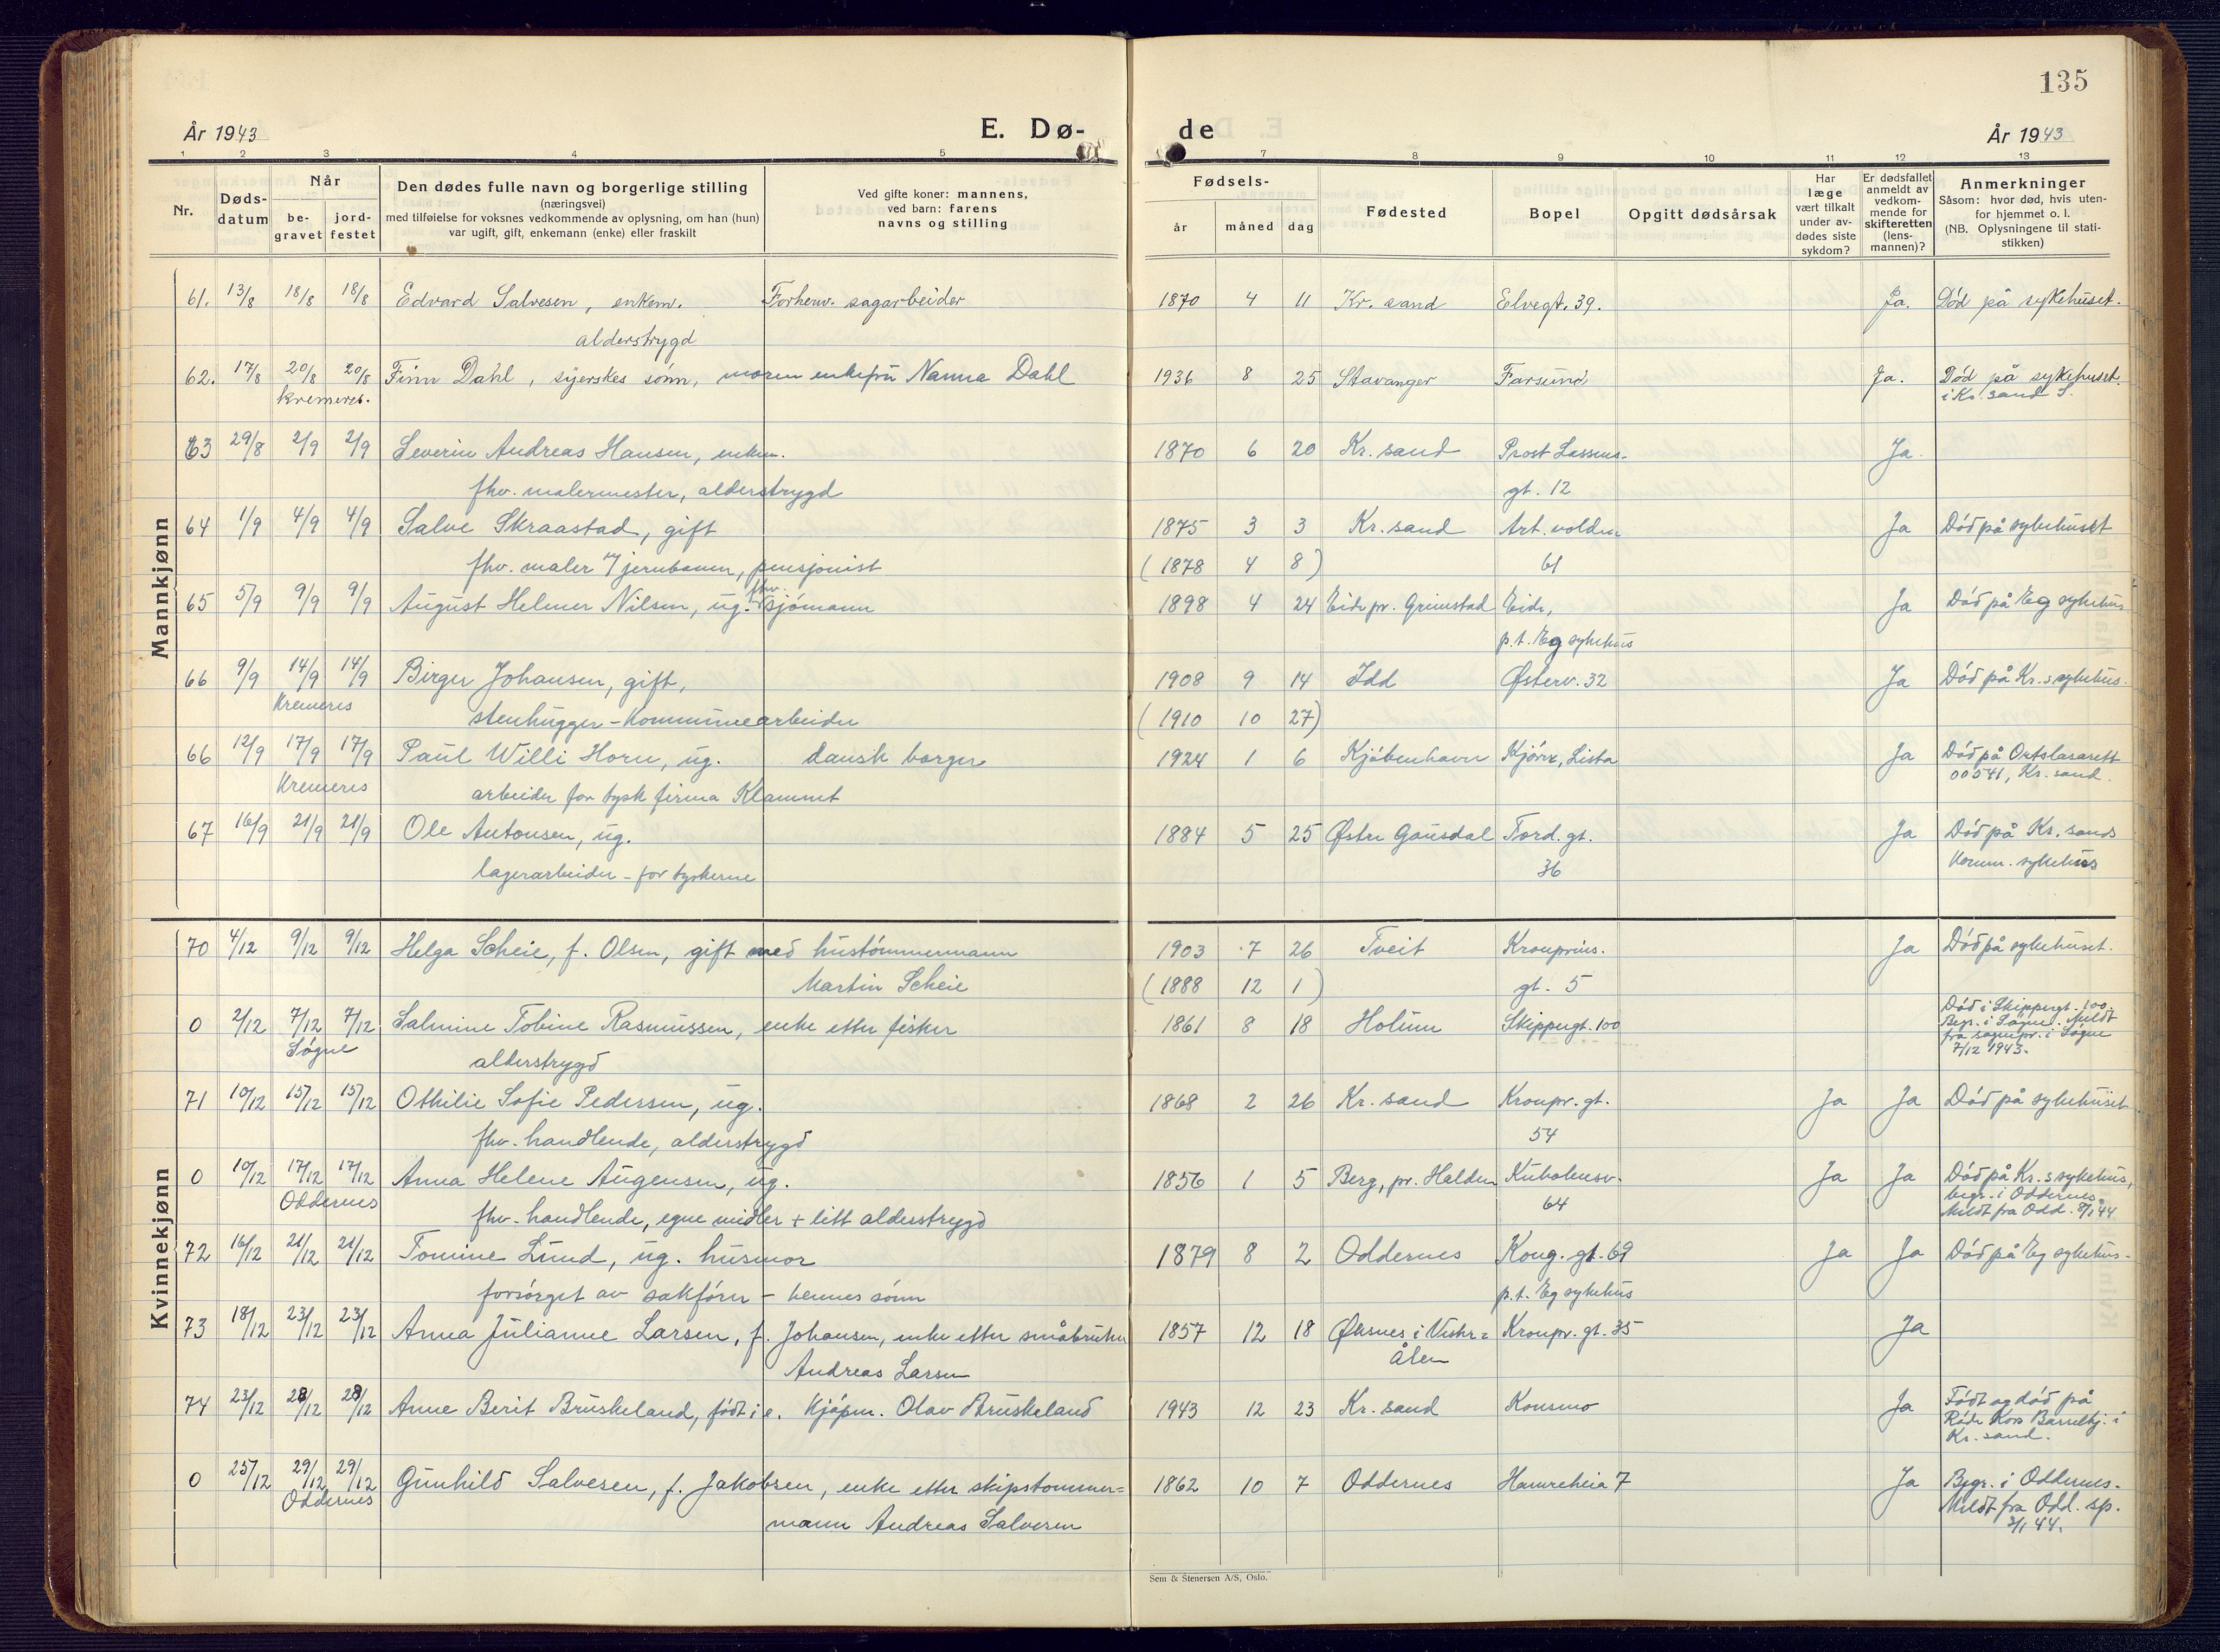 135
År 1943 E. Dø- de År 1943
1 2 3 4 5 7 8 9 10 11 12 13
Nr. Døds-datum Når be-gravet jord-festet Den dødes fulle navn og borgerlige stilling (næringsvei) med tilføielse for voksnes vedkommende av oplysning, om han (hun) var ugift, gift, enkemann (enke) eller fraskilt Ved gifte koner: mannens, ved barn: farens navns og stilling Fødsels- år måned dag Fødested Bopel Opgitt dødsårsak Har læge vært tilkalt under av-dødes siste sykdom? Er dødsfallet anmeldt av vedkom-mende for skifteretten (lens-mannen)? Anmerkninger Såsom: hvor død, hvis uten-for hjemmet o. l. (NB. Oplysningene til stati-stikken)
Mannkjønn
61. 13/8 18/8 18/8 Edvard Salvesen, enkem. Forhenv. sagarbeider 1870 4 11 Kr. sand Elvegt. 39. Ja. Død på sykehuset.
alderstrygd
62. 17/8 20/8 20/8 Finn Dahl, syerskes sønn, moren enkefru Nanna Dahl 1936 8 25 Stavanger Farsund Ja. Død på sykehuset.
kremeres. i Kr. sand S.
63 29/8 2/9 2/9 Severin Andreas Hansen, enkem. 1870 6 20 Kr. sand Prost Lassens- Ja.
fhv. malermester, alderstrygd gt. 12
64 1/9 4/9 4/9 Salve Skraastad, gift 1875 3 3 Kr. sand Art. volden Ja Død på sykehuset
fhv. maler v/ jernbanen, pensjonist (1878 4 8) 61
65 5/9 9/9 9/9 August Helmer Nilsen, ug. fhv. sjømann 1898 4 24 Eide pr. Grimstad Eide, Ja Død på Eg sykehus
p.t. Eg sykehus
66 9/9 14/9 14/9 Birger Johansen, gift, 1908 9 14 Idd Østerv. 32 Ja Død på Kr.s sykehus.
Kremeres stenhugger - Kommunearbeider (1910 10 27)
66 12/9 17/9 17/9 Paul Willi Horn, ug. dansk borger 1924 1 6 Kjøbenhavn Kjørre, Lista Ja Død på Ortslasarett
Kremeres arbeider for tysk firma Klammt 00541, Kr. sand.
67 16/9 21/9 21/9 Ole Antonsen, ug. 1884 5 25 Østre Gausdal Tord. gt. Ja Død på Kr. sands
lagerarbeider - for tyskerne 36 Komm. sykehus
Kvinnekjønn
70 4/12 9/12 9/12 Helga Scheie, f. Olsen, gift med hustømmermann 1903 7 26 Tveit Kronprins. Ja Død på sykehuset.
Martin Scheie (1888 12 1) gt. 5
0 2/12 7/12 7/12 Salmine Tobine Rasmussen, enke etter fisker 1861 8 18 Holum Skippergt. 100 Død i Skippergt. 100. Begr. i Søgne. Meldt
Søgne alderstrygd fra sognepr. i Søgne 7/12 1943.
71 10/12 15/12 15/12 Othilie Sofie Pedersen, ug. 1868 2 26 Kr. sand Kronpr. gt. Ja Ja Død på sykehuset
fhv. handlende, alderstrygd 54
0 10/12 17/12 17/12 Anna Helene Augensen, ug. 1856 1 5 Berg, pr. Halden Kuholmsv. Ja Ja Død på Kr.s sykehus,
Oddernes fhv. handlende, egne midler + litt alderstrygd 64 begr. i Oddernes. Meldt fra Odd. 8/1 44
72 16/12 21/12 21/12 Tomine Lund, ug. husmor 1879 8 2 Oddernes Kong. gt. 69 Ja Ja Død på Eg sykehus.
forsørget av sakfører - hennes sønn p.t. Eg sykehus
73 18/12 23/12 23/12 Anna Julianne Larsen, f. Johansen, enke etter småbruker 1857 12 18 Øksnes i Vester= Kronpr. gt. 35 Ja
Andreas Larsen ålen
74 23/12 28/12 28/12 Anne Berit Bruskeland, født i e. Kjøpm. Olav Bruskeland 1943 12 23 Kr. sand Konsmo Ja Født og død på
Røde Kors Barselhj. i Kr. sand.
0 25/12 29/12 29/12 Gunhild Salvesen, f. Jakobsen, enke etter skipstømmer= 1862 10 7 Oddernes Hamreheia 7 Ja Begr. i Oddernes.
Oddernes mann Andreas Salvesen Meldt fra Odd. sp. 3/1 44.
Sem & Stenersen A/S, Oslo.